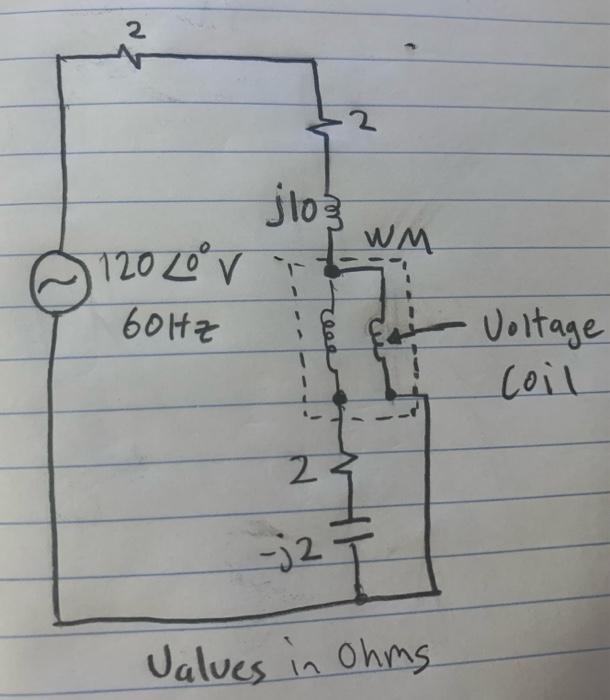 2
2
j10
WM
120∠0° V
60Hz
Voltage
Coil
2
-j2
Values in Ohms